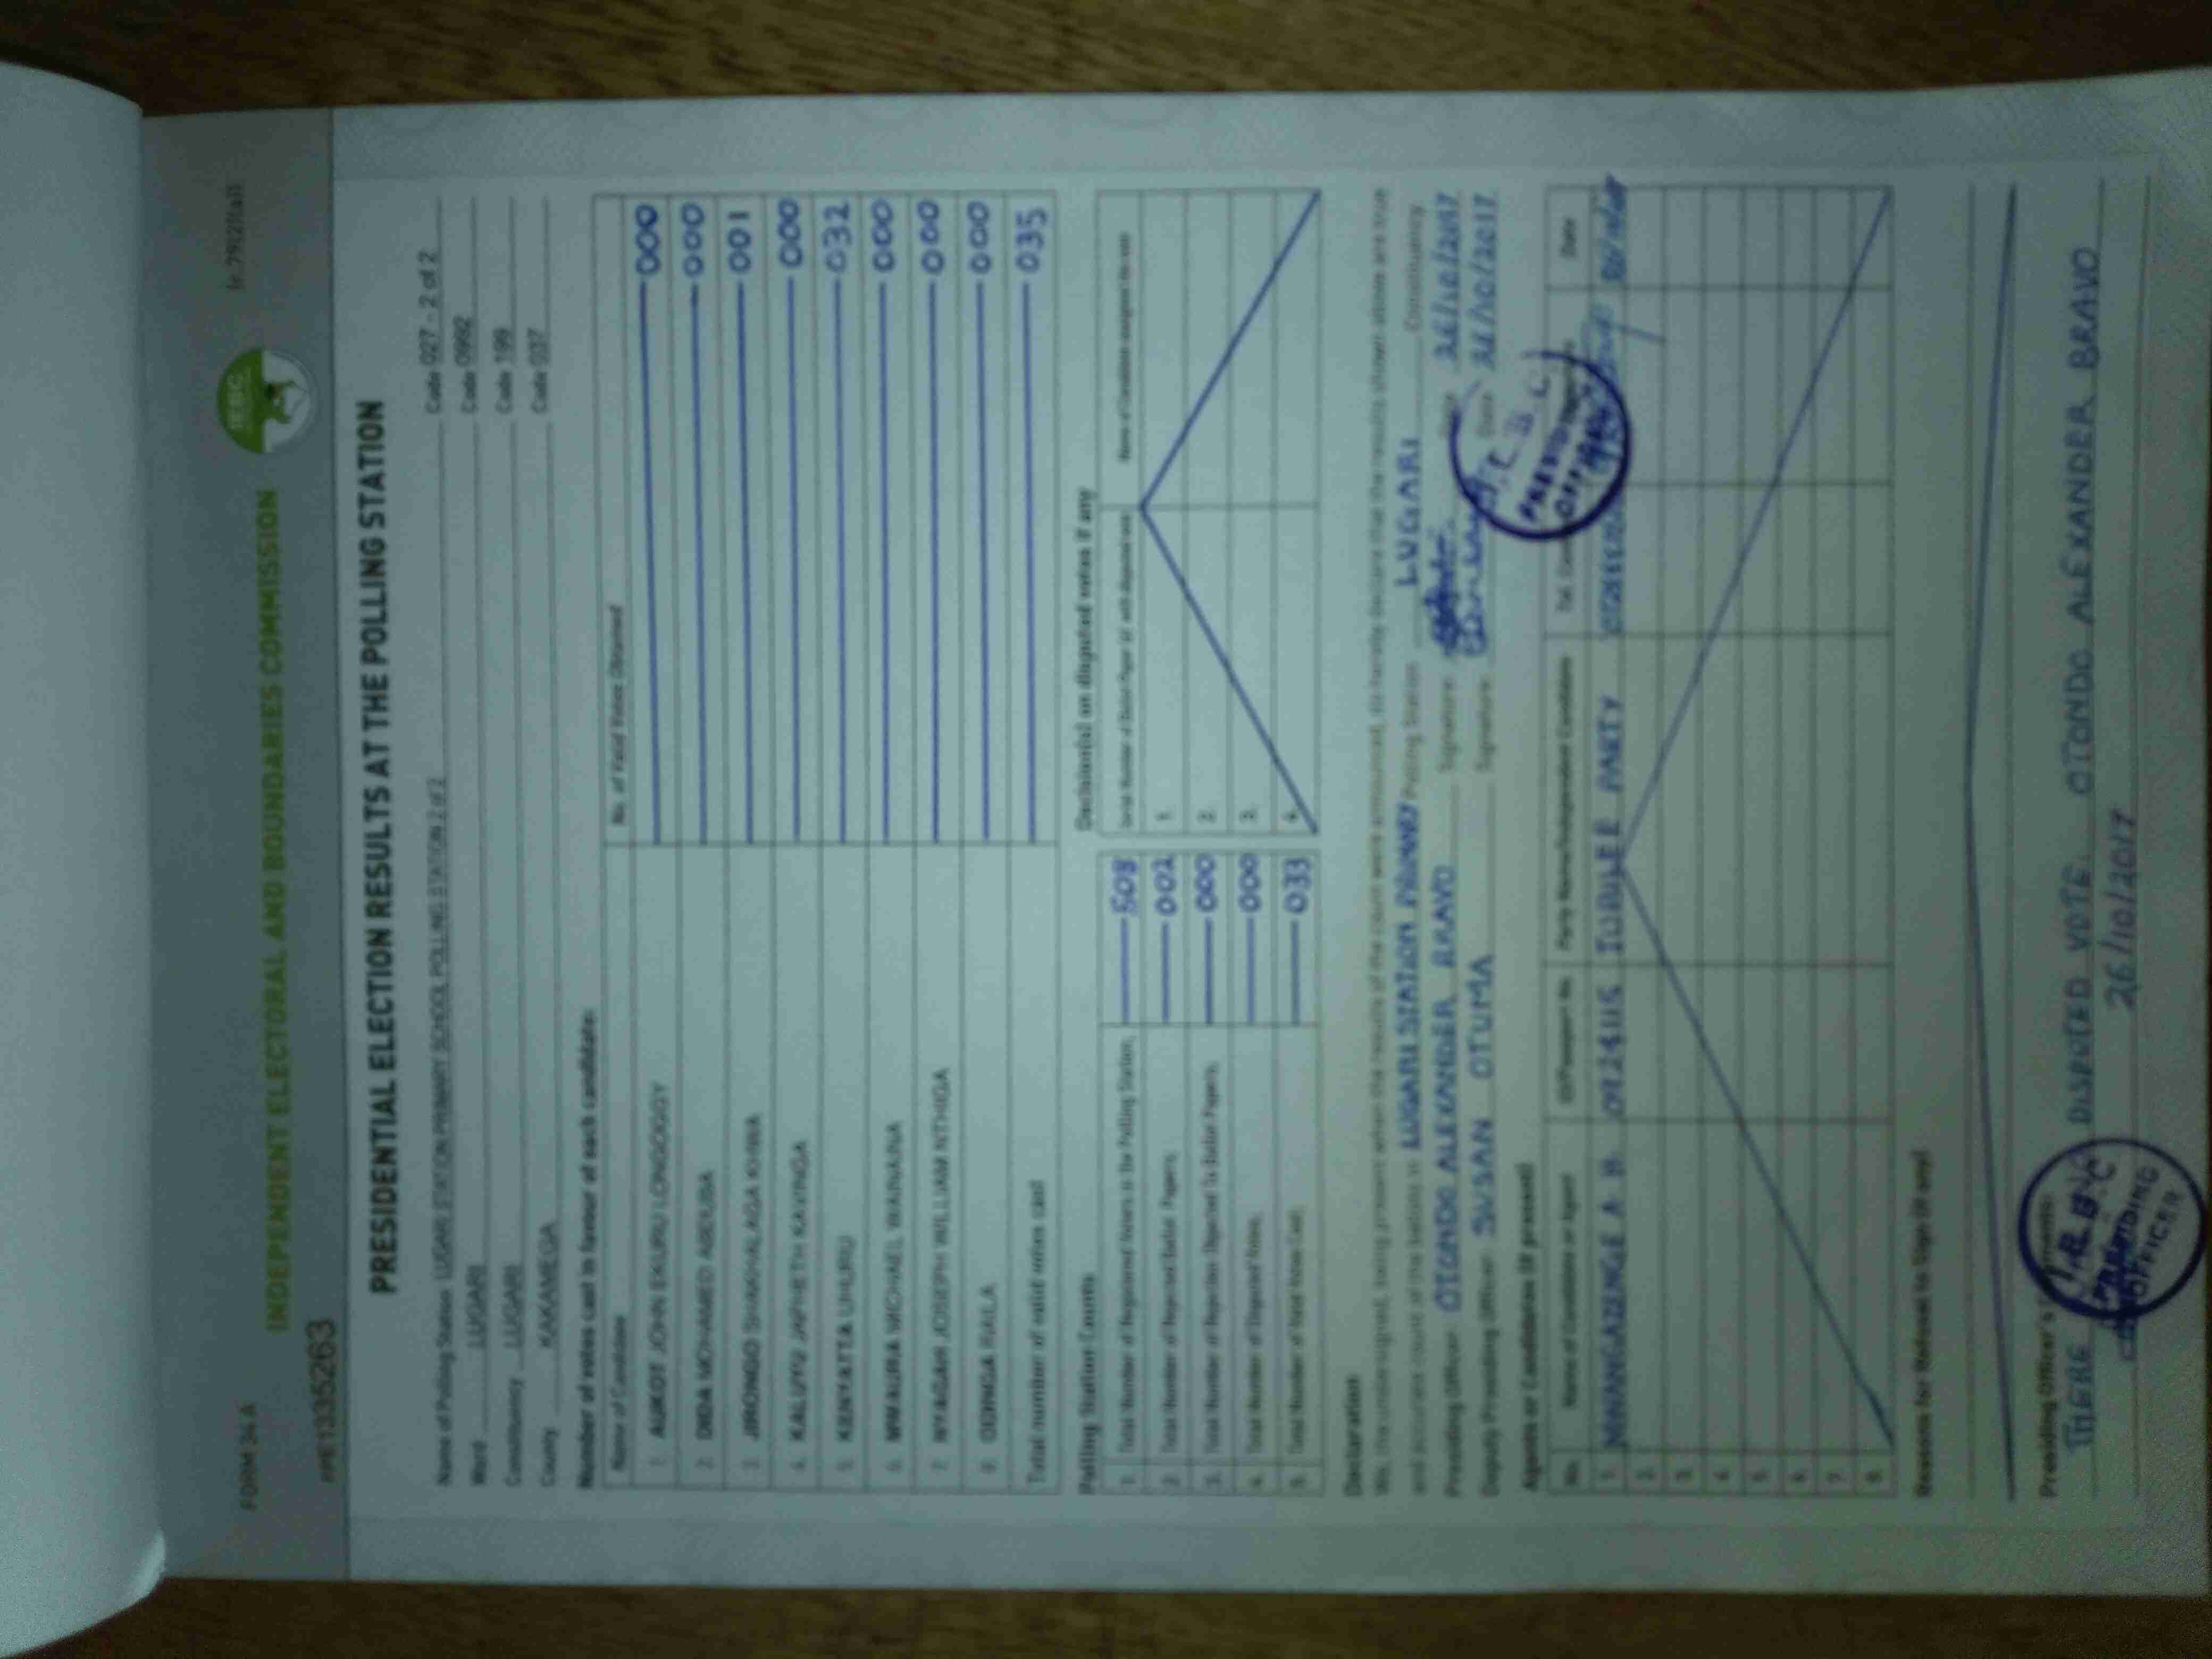 FORM 34A
INDEPENDENT ELECTORAL AND BOUNDARIES COMMISSION
IEBC
PRESIDENTIAL ELECTION RESULTS AT THE POLLING STATION
Name of Polling Station LUGARI STATION PRIMARY SCHOOL POLLING STATION 2 of 2 Code 027 - 2 of 2
Ward LUGARI Code 0992
Constituency LUGARI Code 199
County KAKAMEGA Code 037
Number of votes cast in favour of each candidate:
Name of Candidate No. of Valid Votes Obtained
1. AUKOT JOHN EKURU LONGOGGY 000
2. DIDA MOHAMED ABDUBA 000
3. JIRONGO SHAKHALAGA KHWA 001
4. KALUYU JAPHETH KAVINGA 000
5. KENYATTA UHURU 032
6. MWAURA MICHAEL WAINAINA 000
7. NYAGAH JOSEPH WILLIAM NTHIGA 000
8. ODINGA RAILA 000
Total number of valid votes cast 035
Polling Station Counts
1. Total Number of Registered Voters in The Polling Station 508
2. Total Number of Rejected Ballot Papers 002
3. Total Number of Rejection Objected To Ballot Papers 000
4. Total Number of Disputed Votes 000
5. Total Number of Valid Votes Cast 033
Decision(s) on disputed votes if any
1.
2.
3.
4.
Declaration
We, the undersigned, being present when the results of the count were announced, do hereby declare that the results shown above are true
and accurate count of the ballots in LUGARI STATION PRIMARY Polling Station LUGARI Constituency
Presiding Officer: OTONDO ALEXANDER BRAVO Signature: Date 26/10/2017
Deputy Presiding Officer: SUSAN OTUMA Signature: Date 26/10/2017
PRESIDING OFFICER
Agents or Candidates (if present)
No. Name of Candidate or Agent ID/Passport No Party Name/Independent Candidate Date
1. JUBILEE PARTY
2.
3.
4.
5.
6.
7.
8.
Reasons for Refusal to Sign (if any)
Presiding Officer's
THERE DISPUTED VOTE. OTONDO ALEXANDER BRAVO
26/10/2017
PRESIDING OFFICER